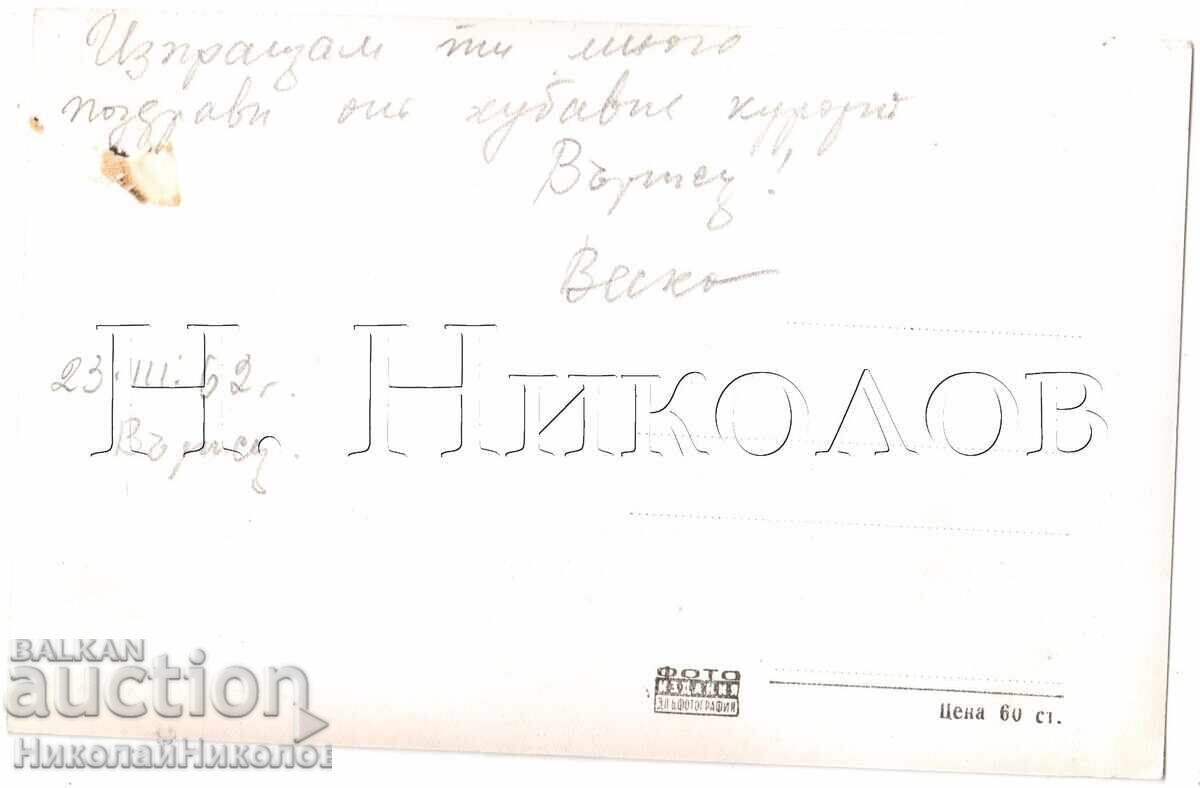 Изпращам ти много
поздрави от хубавия курорт
Вършец!
Веско
23.III.62 г.
Вършец.
Н. Николов
BALKAN
auction
НиколайНиколов
ФОТО
ИЗДАНИЯ
ДП БЪЛ.ФОТОГРАФИЯ
Цена 60 ст.